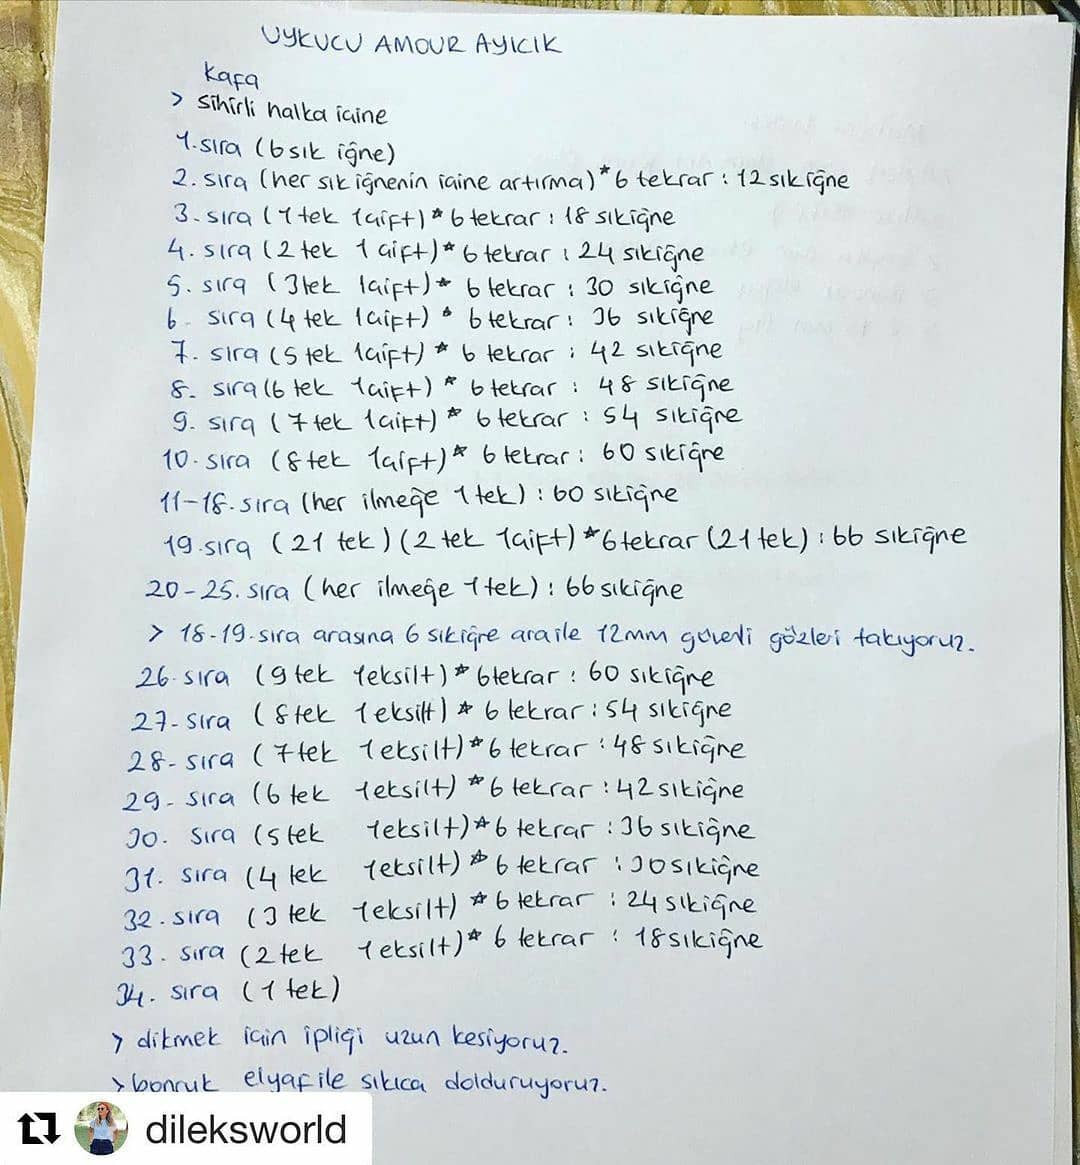 UYKUCU AMOUR AYICIK
Kafa
> sihirli halka içine
1.sıra (6 sık iğne)
2. sıra (her sık iğnenin içine artırma)*6 tekrar : 12 sık iğne
3. sıra (1 tek 1çift)*6 tekrar : 18 sıkiğne
4. sıra (2 tek 1 çift)*6 tekrar : 24 sıkiğne
5. sıra (3tek 1çift)* 6 tekrar : 30 sıkiğne
6. sıra (4 tek 1çift) * 6 tekrar : 36 sıkiğne
7. sıra (5 tek 1çift) * 6 tekrar : 42 sıkiğne
8. sıra (6 tek 1çift) * 6 tekrar : 48 sıkiğne
9. sıra (7 tek 1çift) * 6 tekrar : 54 sıkiğne
10. sıra (8 tek 1çift)* 6 tekrar : 60 sıkiğne
11-18. sıra (her ilmeğe 1 tek) : 60 sıkiğne
19.sıra (21 tek) (2 tek 1çift) *6tekrar (21 tek) : 66 sıkiğne
20-25. sıra (her ilmeğe 1 tek) : 66 sıkiğne
> 18-19.sıra arasına 6 sıkiğne ara ile 12mm güvenli gözleri takıyoruz.
26. sıra (9 tek 1eksilt)* 6tekrar : 60 sıkiğne
27- sıra (8 tek 1 eksilt) * 6 tekrar : 54 sıkiğne
28- sıra (7 tek 1 eksilt)*6 tekrar : 48 sıkiğne
29- sıra (6 tek 1eksilt) *6 tekrar : 42 sıkiğne
30. sıra (5 tek 1eksilt)*6 tekrar : 36 sıkiğne
31. sıra (4 tek 1eksilt) * 6 tekrar : 30 sıkiğne
32. sıra (3 tek 1eksilt) *6 tekrar : 24 sıkiğne
33. sıra (2 tek 1 eksilt)* 6 tekrar : 18 sıkiğne
34. sıra (1 tek)
> dikmek için ipliği uzun kesiyoruz.
> boncuk elyaf ile sıkıca dolduruyoruz.
dileksworld